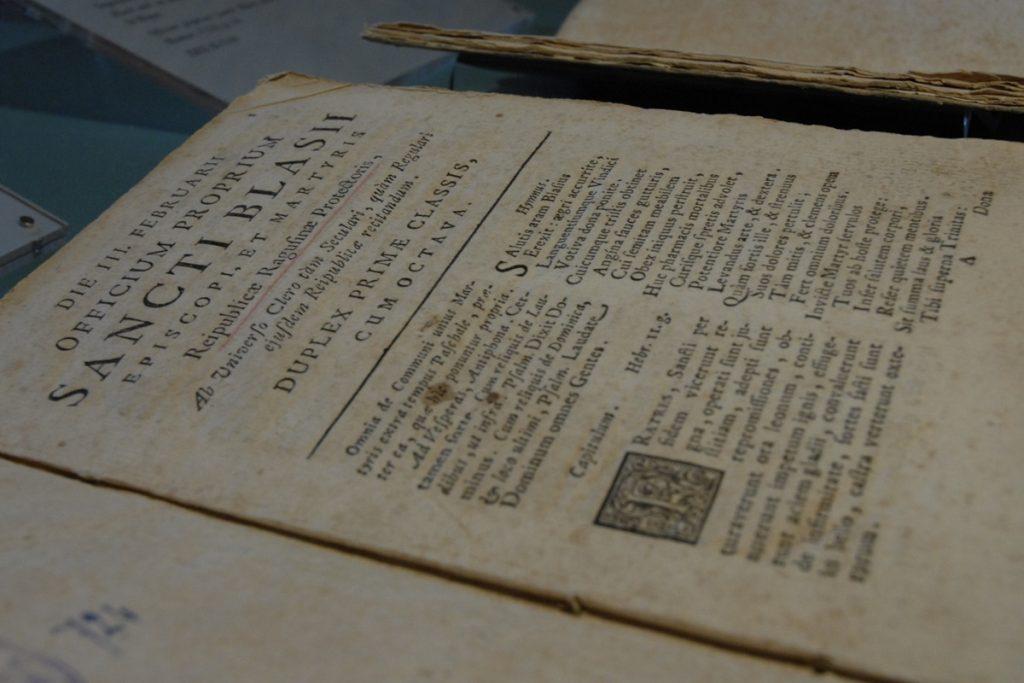 DIE III. FEBRUARII
OFFICIUM PROPRIUM
SANCTI BLASII
EPISCOPI, ET MARTYRIS
Reipublicæ Ragusinæ Protectoris,
Ab Universo Clero tam Seculari, quàm Regulari
ejusdem Reipublicæ recitandum.
DUPLEX PRIMÆ CLASSIS,
CUM OCTAVA.
Omnia de Communi unius Mar-
tyris extra tempus Paschale, præ-
ter ea, quæ hic ponuntur propria.
Ad Vesperas, Antiphona. Cer-
tamen forte. Cum reliquis de Lau-
dibus, ut infra. Psalm. Dixit Do-
minus. Cum reliquis de Dominica,
& loco ultimi, Psalm. Laudate
Dominum omnes Gentes.
Capitulum. Hebr. 11. g.
FRATRES, Sancti per
fidem vicerunt re-
gna, operati sunt ju-
stitiam, adepti sunt
repromissiones, ob-
turaverunt ora leonum, exti-
nxerunt impetum ignis, effuge-
runt aciem gladii, convaluerunt
de infirmitate, fortes facti sunt
in bello, castra verterunt exte-
rorum.
Hymnus.
Salutis aram Blasius
Erexit: ægri accurrite,
Languonumque Vindici
Votiva dona pendite.
Cuicumque arillas obsidet
Angina fauces gutturis,
Cui semitam meabilem
Obex iniquus perstruit,
Huc pharmacis mortalibus
Cariisque spretis advolet,
Potentiore Martyris
Levandus arte, & dextera.
Quàm fortis ille, & strenuus
Suos dolores pertulit,
Tam mitis, & clemens opem
Fert omnium doloribus.
Invicte Martyr servulos
Tuos ab hoste protege:
Infer salutem corpori,
Refer quietem mentibus.
Sit summa laus & gloria
Tibi superna Trinitas:
A
Dona
724